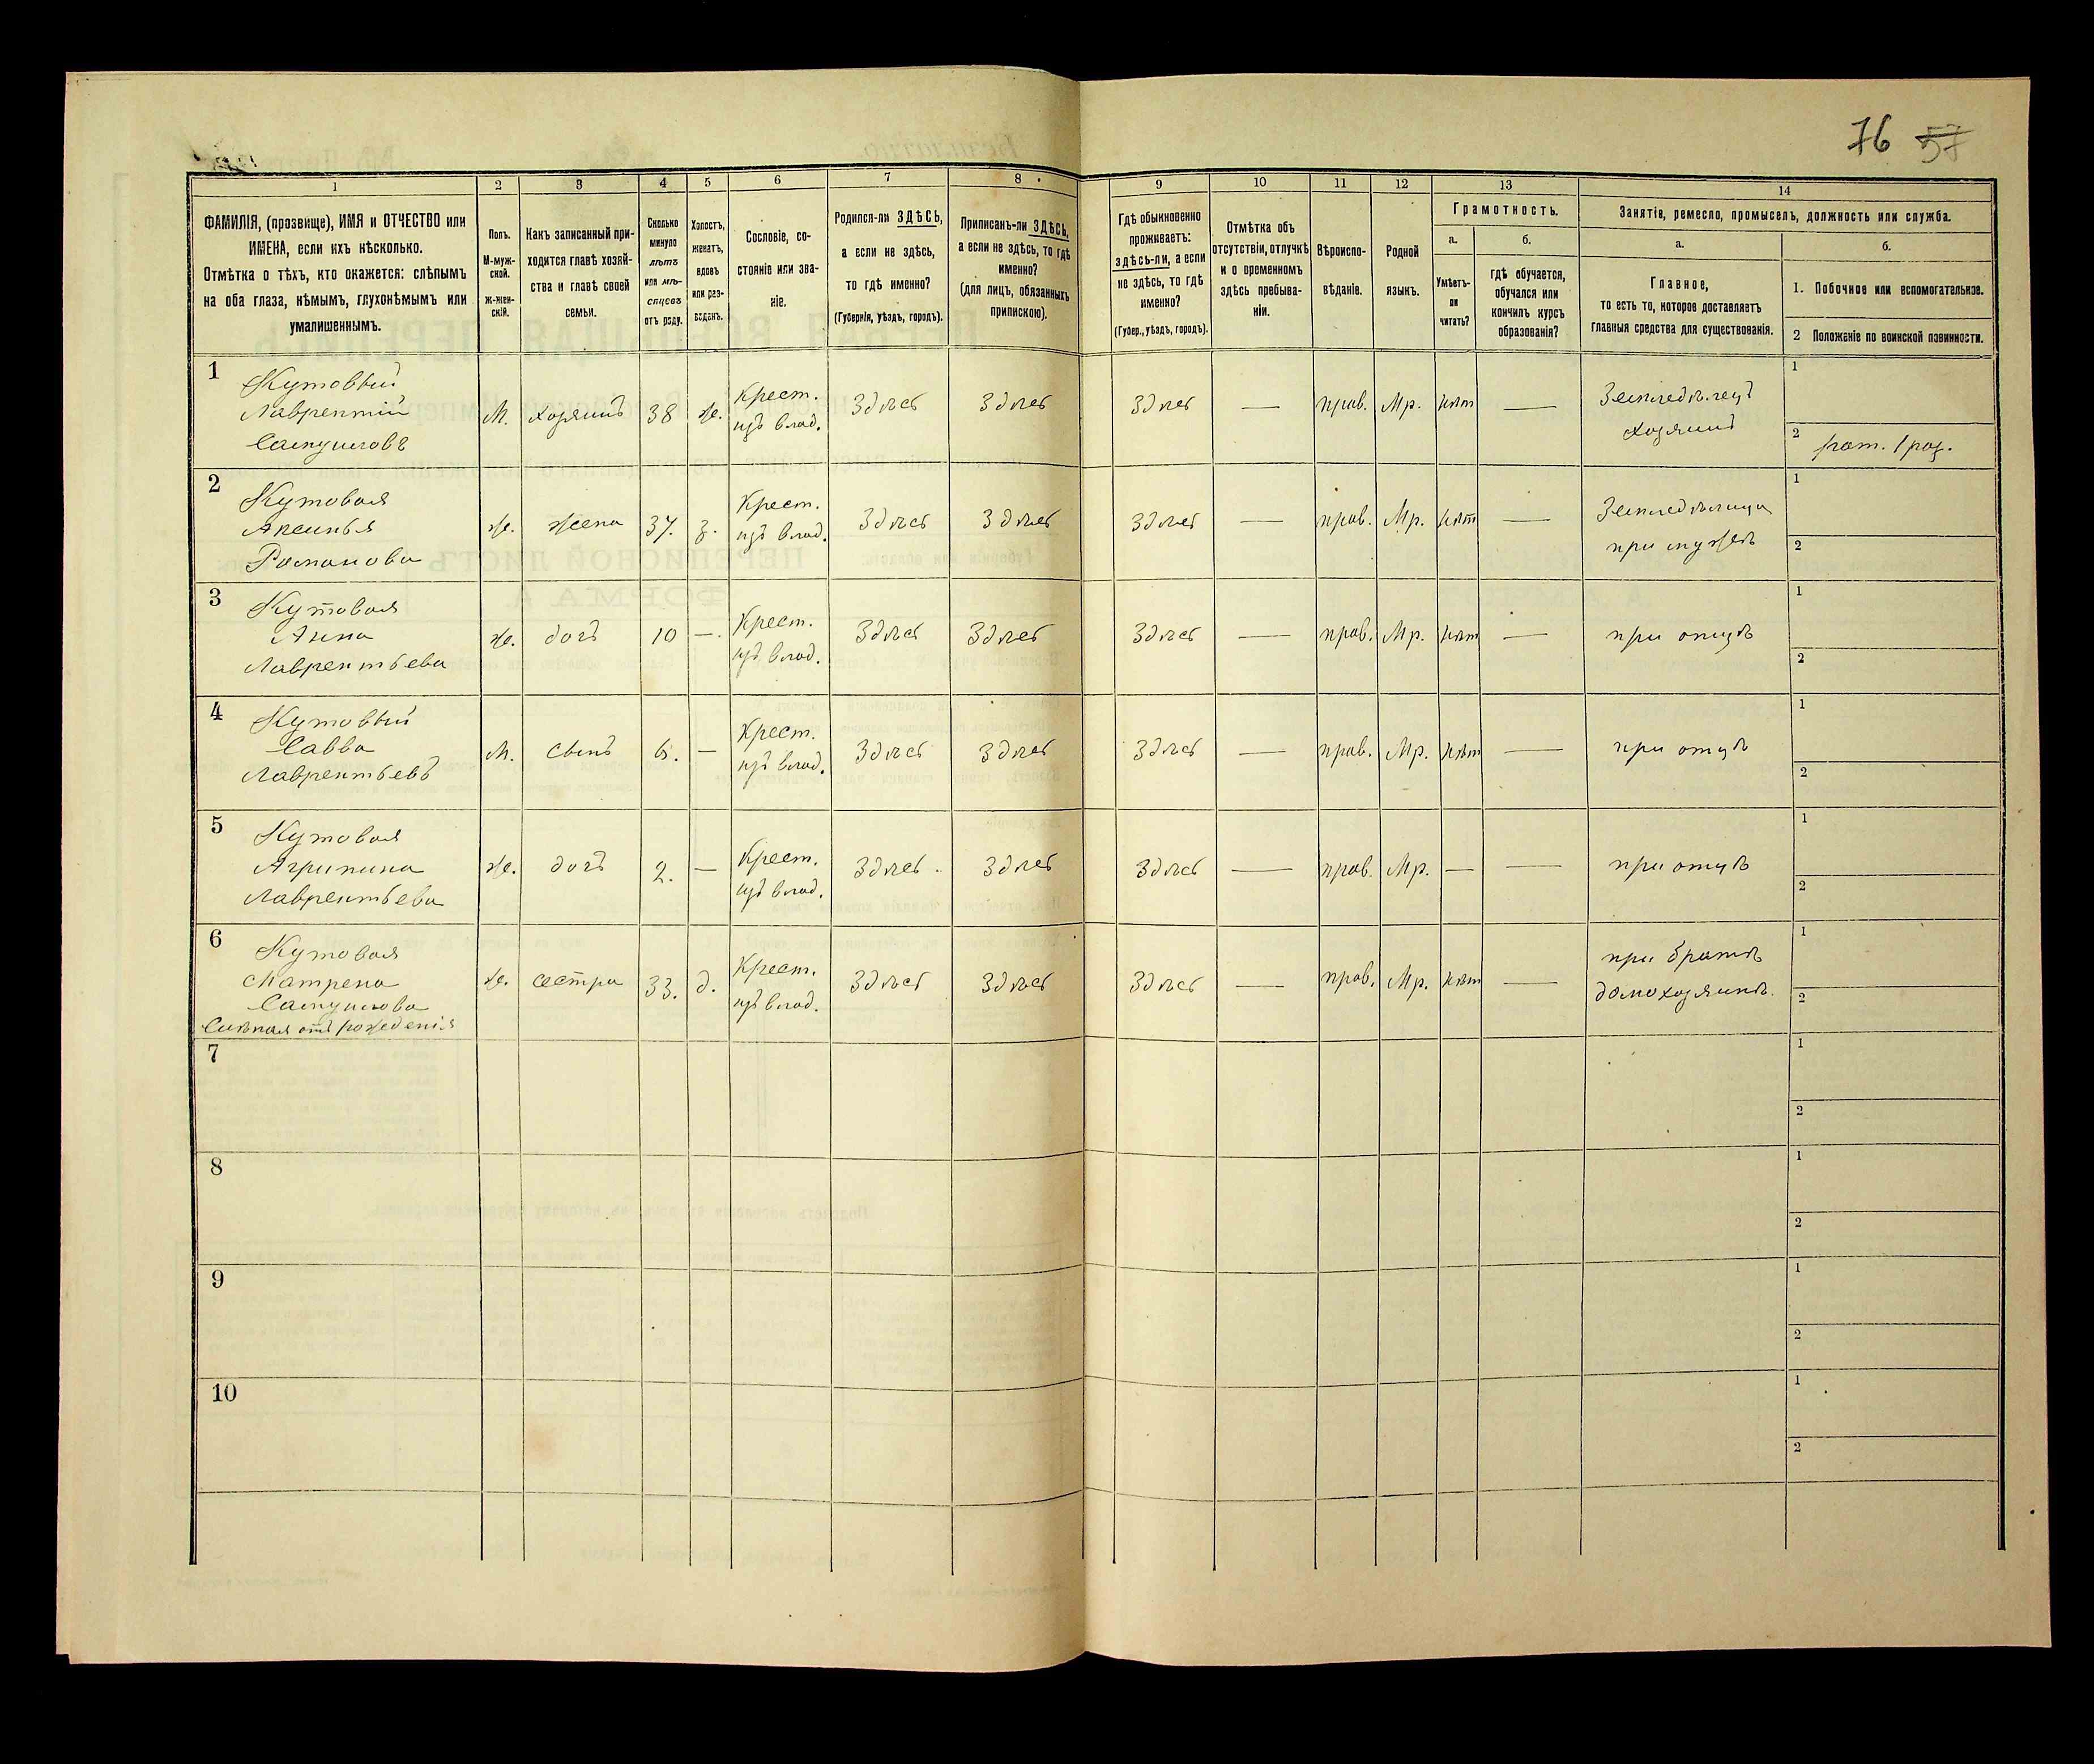 76 57
1 2 3 4 5 6 7 8 9 10 11 12 13 14
ФАМИЛІЯ, (прозвище), ИМЯ и ОТЧЕСТВО или
ИМЕНА, если ихъ нѣсколько.
Отмѣтка о тѣхъ, кто окажется: слѣпымъ
на оба глаза, нѣмымъ, глухонѣмымъ или
умалишеннымъ.
Полъ.
М-муж-
ской.
Ж-жен-
скій.
Какъ записанный при-
ходится главѣ хозяй-
ства и главѣ своей
семьи.
Сколько
минуло
лѣтъ
или мѣ-
сяцевъ
отъ роду.
Холостъ,
женатъ,
вдовъ
или раз-
веденъ.
Сословіе, со-
стояніе или зва-
ніе.
Родился-ли ЗДѢСЬ,
а если не здѣсь,
то гдѣ именно?
(Губернія, уѣздъ, городъ).
Приписанъ-ли ЗДѢСЬ,
а если не здѣсь, то гдѣ
именно?
(для лицъ, обязанныхъ
припискою).
Гдѣ обыкновенно
проживаетъ:
здѣсь-ли, а если
не здѣсь, то гдѣ
именно?
(Губер., уѣздъ, городъ).
Отмѣтка объ
отсутствіи, отлучкѣ
и о временномъ
здѣсь пребыва-
ніи.
Вѣроиспо-
вѣданіе.
Родной
языкъ.
Грамотность.
а.
Умѣетъ-
ли
читать?
б.
гдѣ обучается,
обучался или
кончилъ курсъ
образованія?
Занятіе, ремесло, промыселъ, должность или служба.
а.
Главное,
то есть то, которое доставляетъ
главныя средства для существованія.
б.
1. Побочное или вспомогательное.
2 Положеніе по воинской повинности.
1
Кутовый
Лаврентій
Самуиловъ
М. хозяинъ 38 ж.
Крест.
изъ влад.
Здѣсь Здѣсь Здѣсь — прав. Мр. нѣт —
Земледѣлецъ
хозяинъ
1
2 рат. 1 раз.
2
Кутовая
Аксинья
Романова
ж. жена 37. з.
Крест.
изъ влад.
Здѣсь Здѣсь Здѣсь — прав. Мр. нѣт —
Земледѣлица
при мужѣ
1
2
3
Кутовая
Анна
Лаврентьева
ж. дочь 10 —.
Крест.
изъ влад.
Здѣсь Здѣсь Здѣсь — прав. Мр. нѣт —
при отцѣ
1
2
4
Кутовый
Савва
Лаврентьевъ
М. сынъ 6. —
Крест.
изъ влад.
Здѣсь Здѣсь Здѣсь — прав. Мр. нѣт —
при отцѣ
1
2
5
Кутовая
Агрипина
Лаврентьева
ж. дочь 2. —
Крест.
изъ влад.
Здѣсь Здѣсь Здѣсь — прав. Мр. — —
при отцѣ
1
2
6
Кутовая
Матрена
Самуилова
Слѣпая отъ рожденія
ж. сестра 33. д.
Крест.
изъ влад.
Здѣсь Здѣсь Здѣсь — прав. Мр. нѣт —
при братѣ
домохозяинѣ.
1
2
7
1
2
8
1
2
9
1
2
10
1
2